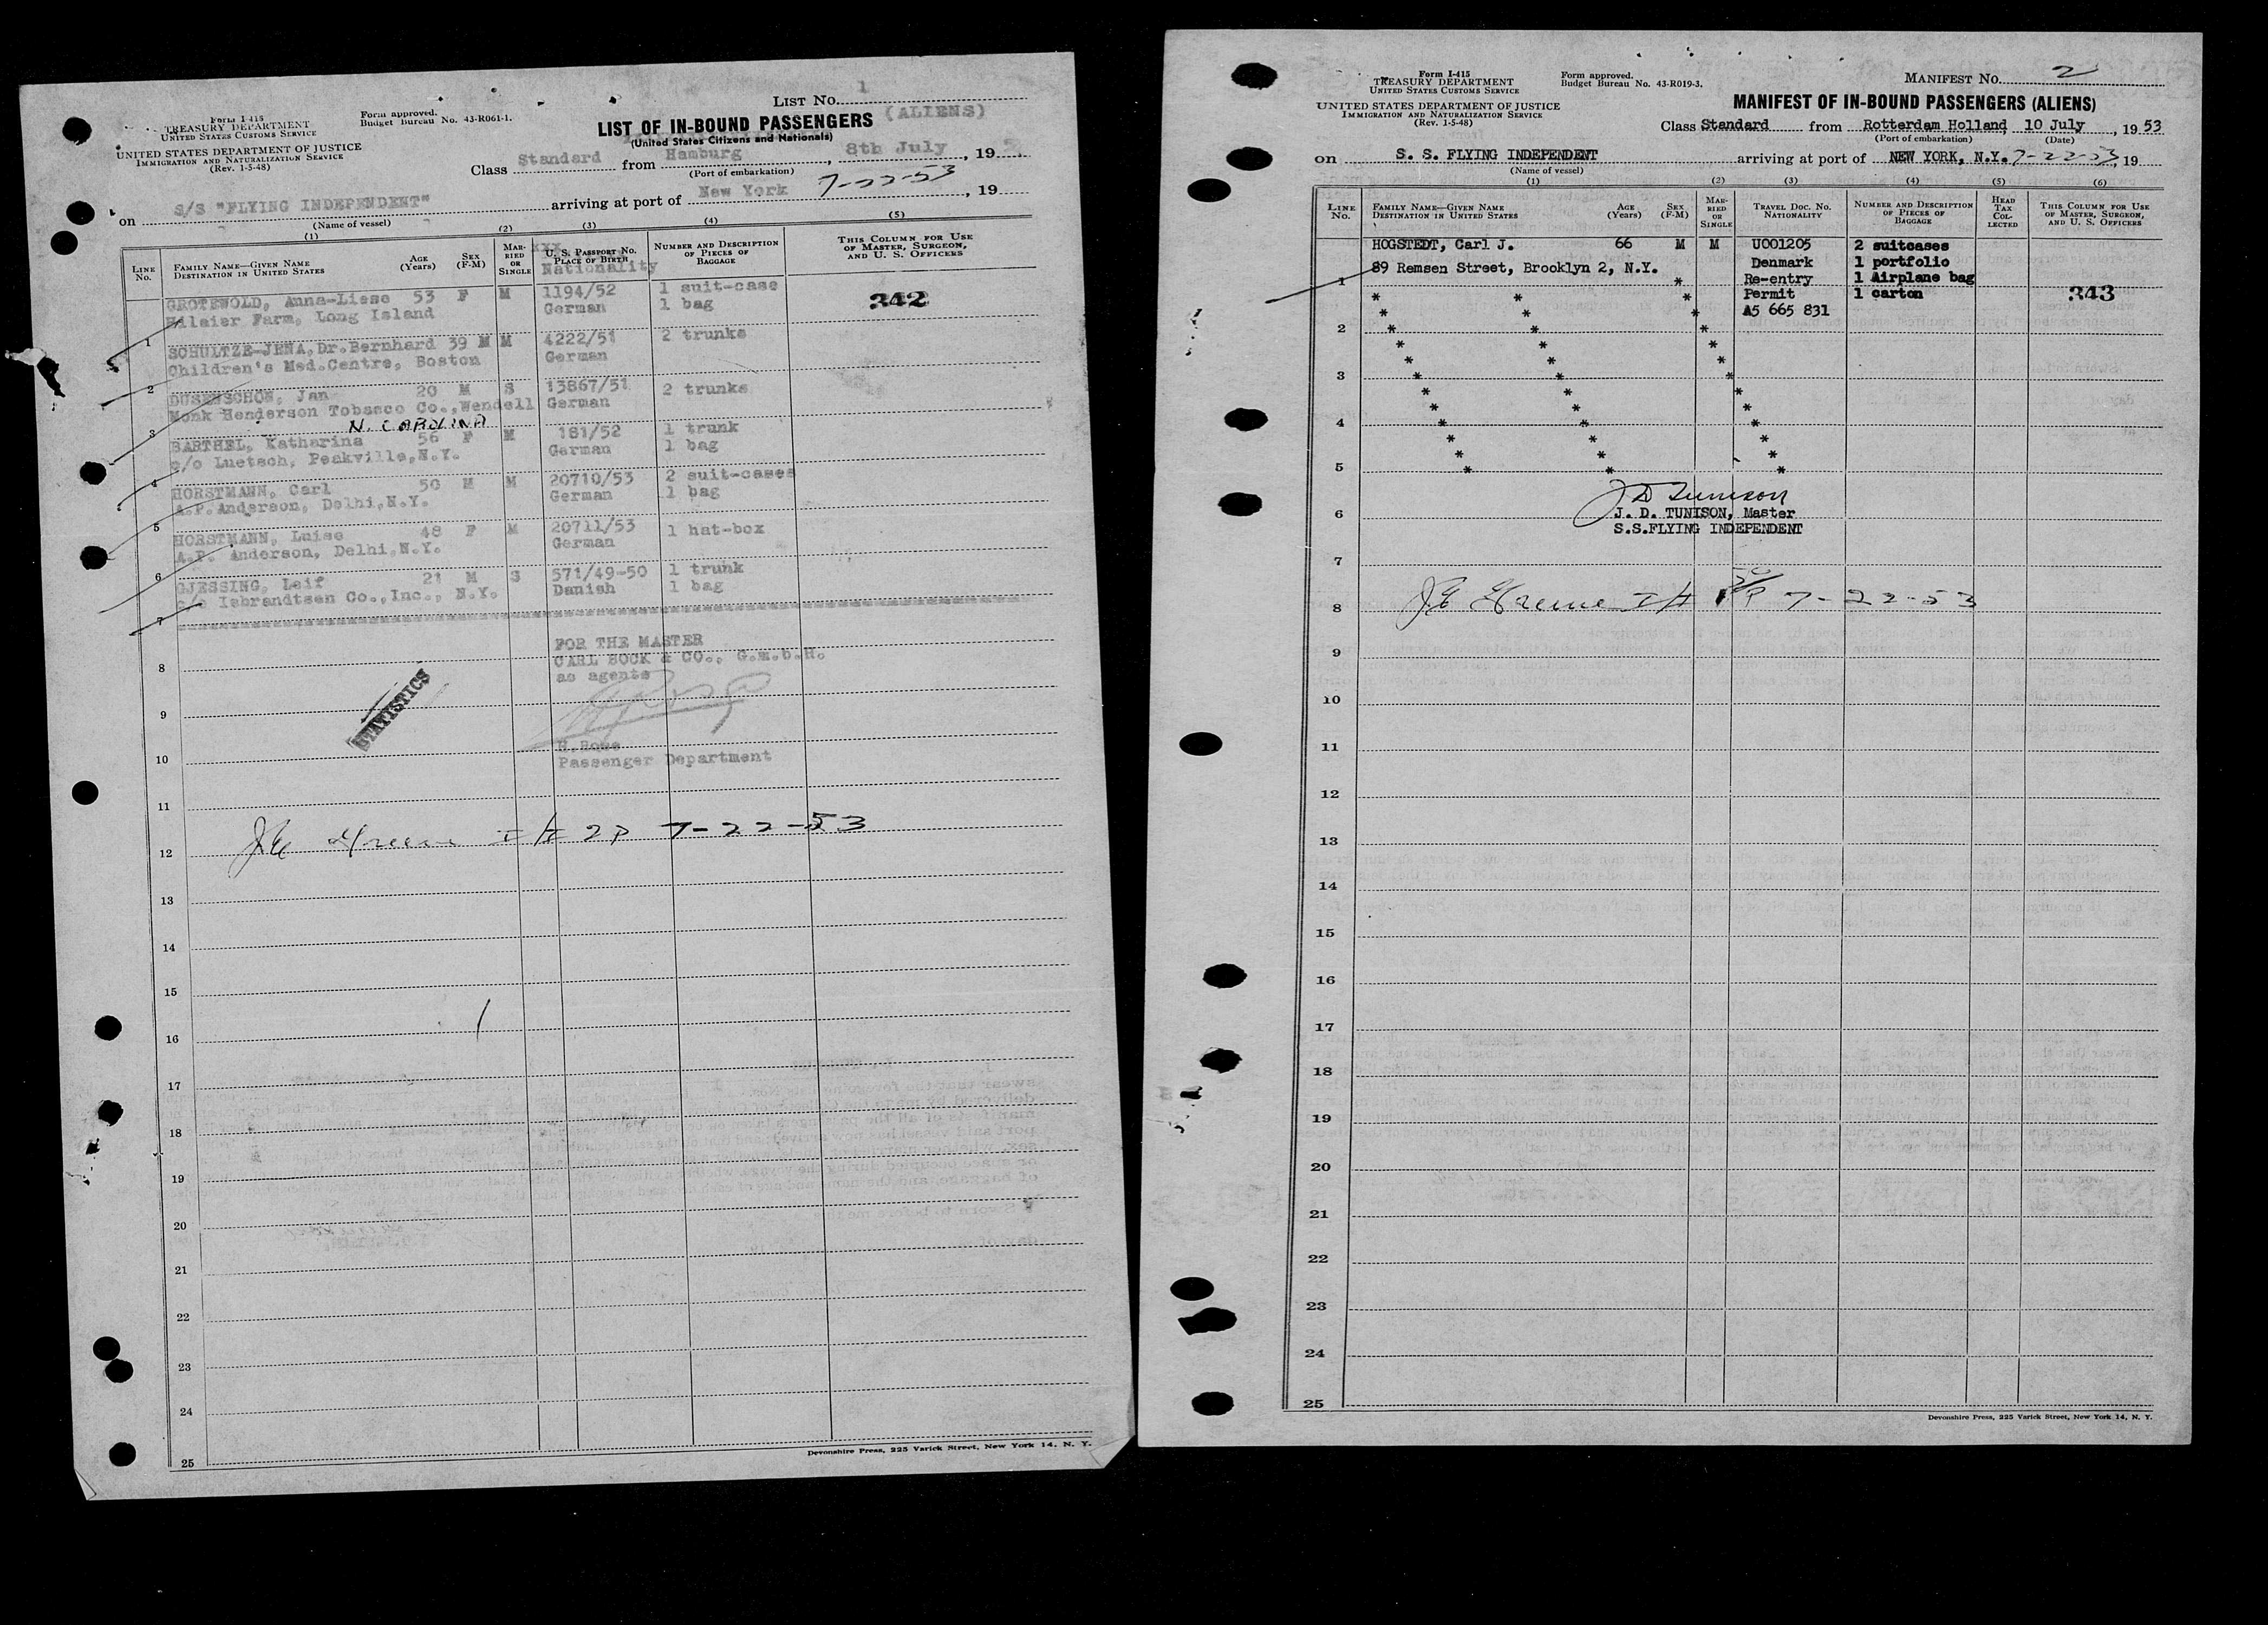 Form I-415
TREASURY DEPARTMENT
UNITED STATES CUSTOMS SERVICE
UNITED STATES DEPARTMENT OF JUSTICE
IMMIGRATION AND NATURALIZATION SERVICE
(Rev. 1-5-48)
Form approved.
Budget Bureau No. 43-R061-1.
LIST No. 1
LIST OF IN-BOUND PASSENGERS (ALIENS)
(United States Citizens and Nationals)
Class Standard from Hamburg, 8th July, 19
(Port of embarkation)
on S/S "FLYING INDEPENDENT" arriving at port of New York 7-22-53, 19
(Name of vessel)
(1) (2) (3) (4) (5)
LINE No. FAMILY NAME—GIVEN NAME DESTINATION IN UNITED STATES AGE (Years) SEX (F-M) MARRIED OR SINGLE xxx U. S. PASSPORT No. PLACE OF BIRTH Nationality NUMBER AND DESCRIPTION OF PIECES OF BAGGAGE THIS COLUMN FOR USE OF MASTER, SURGEON, AND U. S. OFFICERS
GROTEWOLD, Anna-Liese 53 F M 1194/52 1 suit-case 342
1 Hilaier Farm, Long Island German 1 bag
SCHULTZE-JENA, Dr.Bernhard 39 M M 4222/51 2 trunks
2 Children's Med.Centre, Boston German
DUSENSCHÖN, Jan 20 M S 13867/51 2 trunks
Monk Henderson Tobacco Co.,Wendell German
3 N. CAROLINA
BARTHEL, Katharina 56 F M 181/52 1 trunk
4 c/o Luetsch, Peakville,N.Y. German 1 bag
HORSTMANN, Carl 50 M M 20710/53 2 suit-cases
5 A.P.Anderson, Delhi,N.Y. German 1 bag
HORSTMANN, Luise 48 F M 20711/53 1 hat-box
6 A.P. Anderson, Delhi,N.Y. German
GJESSING, Leif 21 M S 571/49-50 1 trunk
7 c/o Isbrandtsen Co.,Inc., N.Y. Danish 1 bag
FOR THE MASTER
8 CARL BOCK & CO., G.m.b.H.
as agents
STATISTICS
9
10
Passenger Department
11
12 J E Greene I/I 2P 7-22-53
13
14
15
16
17
18
19
20
21
22
23
24
25
Devonshire Press, 225 Varick Street, New York 14, N. Y.
Form I-415
TREASURY DEPARTMENT
UNITED STATES CUSTOMS SERVICE
UNITED STATES DEPARTMENT OF JUSTICE
IMMIGRATION AND NATURALIZATION SERVICE
(Rev. 1-5-48)
Form approved.
Budget Bureau No. 43-R019-3.
MANIFEST No. 2
MANIFEST OF IN-BOUND PASSENGERS (ALIENS)
Class Standard from Rotterdam Holland 10 July, 1953
(Port of embarkation) (Date)
on S. S. FLYING INDEPENDENT arriving at port of NEW YORK, N.Y. 7-22-53, 19
(Name of vessel)
(1) (2) (3) (4) (5) (6)
LINE No. FAMILY NAME—GIVEN NAME DESTINATION IN UNITED STATES AGE (Years) SEX (F-M) MARRIED OR SINGLE TRAVEL DOC. No. NATIONALITY NUMBER AND DESCRIPTION OF PIECES OF BAGGAGE HEAD TAX COLLECTED THIS COLUMN FOR USE OF MASTER, SURGEON, AND U. S. OFFICERS
HOGSTEDT, Carl J. 66 M M U001205 2 suitcases
89 Remsen Street, Brooklyn 2, N.Y. Denmark 1 portfolio
1 Re-entry 1 Airplane bag
Permit 1 carton 343
A5 665 831
2
3
4
5
J D Tunison
6 J. D. TUNISON, Master
S.S.FLYING INDEPENDENT
7
8 J E Greene I/I 7-22-53
9
10
11
12
13
14
15
16
17
18
19
20
21
22
23
24
25
Devonshire Press, 225 Varick Street, New York 14, N. Y.